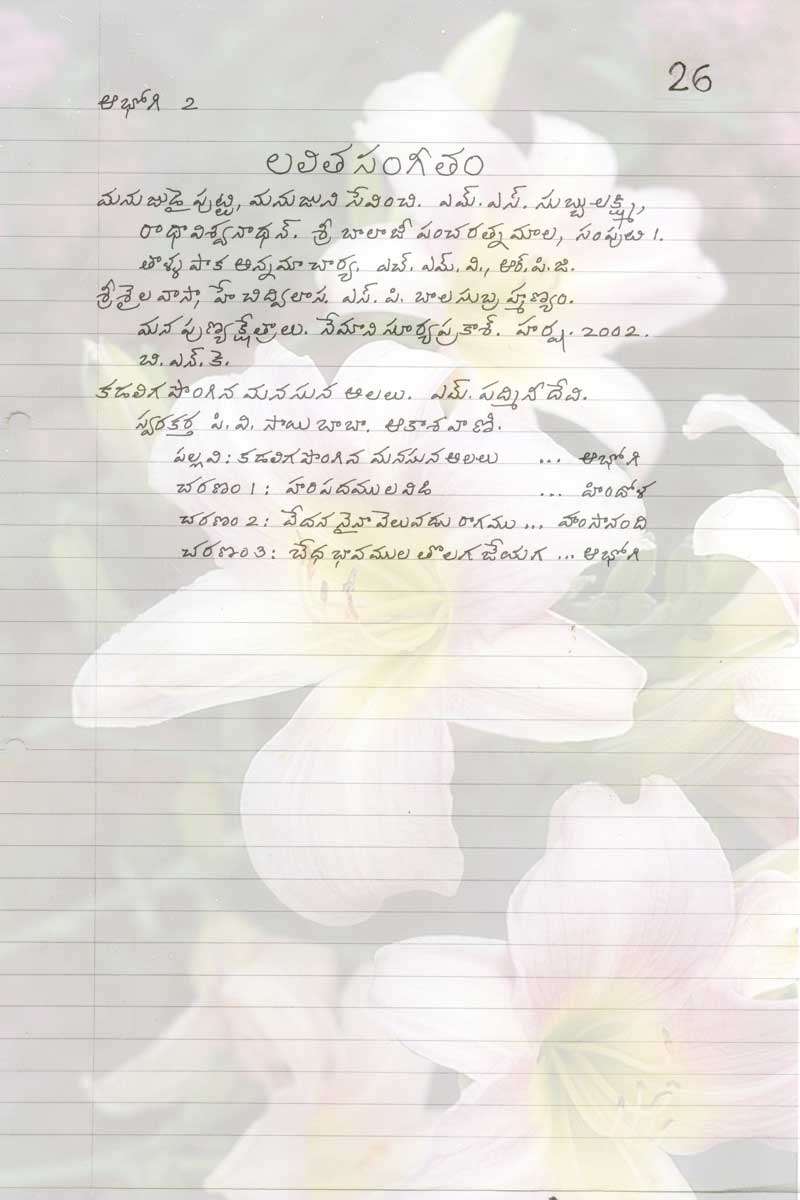 26
ఆభోగి 2
లలిత సంగీతం
మనుజుడై పుట్టి, మనుజుని సేవించి. ఎమ్.ఎస్. సుబ్బులక్ష్మి,
రాధా విశ్వనాథన్. శ్రీ బాలాజీ పంచరత్నమాల, సంపుటి 1.
తాళ్ళపాక అన్నమాచార్య. ఎచ్. ఎమ్. వి., ఆర్.పి.జి.
శ్రీశైల వాసా, హే చిద్విలాస. ఎస్. పి. బాలసుబ్రహ్మణ్యం.
మన పుణ్యక్షేత్రాలు. నేమాని సూర్యప్రకాశ్. హర్ష. 2002.
బి. ఎన్. కె.
కడలిగ పొంగిన మనసున అలలు. ఎమ్. పద్మినీ దేవి.
స్వరకర్త పి. వి. సాయి బాబా. ఆకాశవాణి.
పల్లవి: కడలిగ పొంగిన మనసున అలలు ... ఆభోగి
చరణం 1: హరిపదముల విడి ... హిందోళ
చరణం 2: వేదన నైనా వెలువడు రాగము ... హంసానంది
చరణం 3: భేధ భావముల తొలగ జేయగ ... ఆభోగి